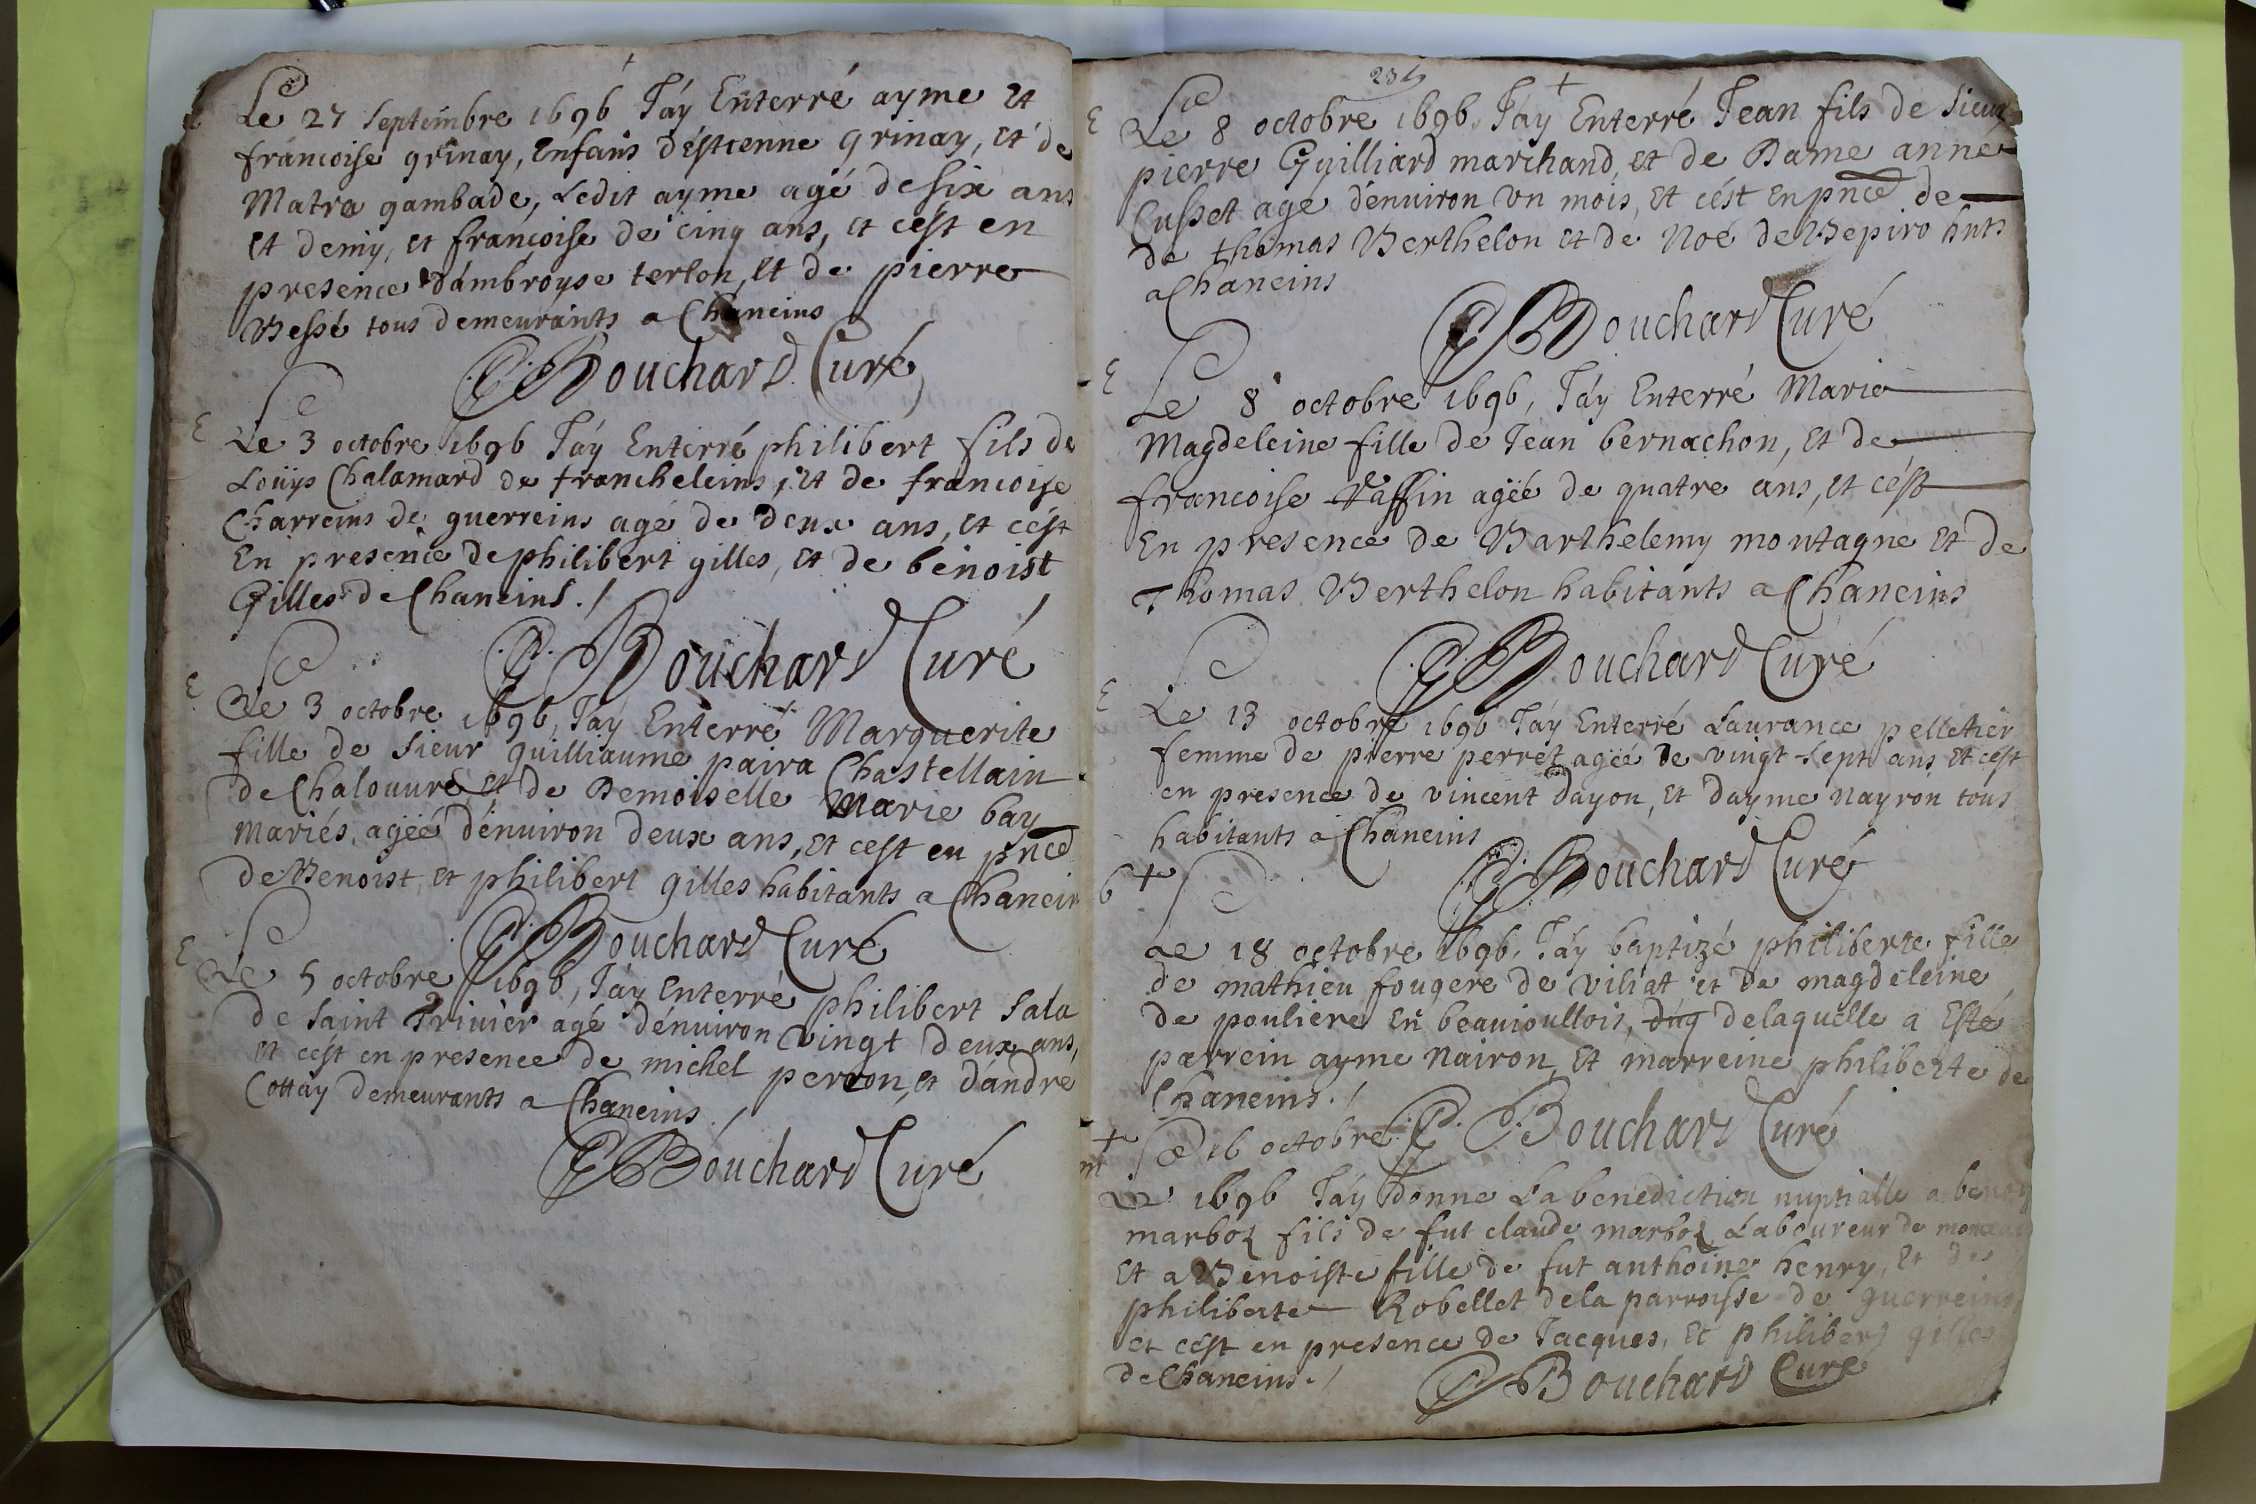 Le 27 septembre 1696 J'ay Enterré ayme et
francoise grinay, Enfans d'estienne grinay, et de
Matra gambade, Ledit ayme agé de six ans
et demy, et francoise de cinq ans, et c'est en
presence d'ambroyse terlon, et de pierre
Bessé tous demeurants a Chaneins
Bouchard Curé
E
Le 3 octobre 1696 J'ay Enterré philibert fils de
Loüys Chalamard de francheleins, et de francoise
Charreins de guerreins agé de deux ans, et c'est
En presence de philibert gilles, et de benoist
Gilles de Chaneins ./
Bouchard Curé
E
Le 3 octobre 1696, J'ay Enterré Marguerite
fille de sieur guilliaume paira Chastellain
de Chalouure et de Demoiselle Marie bay
Mariés, agéé d'enuiron deux ans, et c'est en pnce
de Benoist, et philibert gilles habitants a Chanein
Bouchard Curé
E
Le 5 octobre 1696, J'ay Enterré philibert Sala
de saint Triuier agé d'enuiron vingt deux ans,
et c'est en presence de michel perron, et d'andré
Cottay demeurants a Chaneins ./
Bouchard Curé
E
Le 8 octobre 1696, J'ay Enterré Jean fils de sieur
pierre Guilliard marchand, et de Dame anne
Cusset agé d'enuiron vn mois, et c'est en pnce de
de thomas Berthelon et de Noé de Bepiro hnts
a Chaneins
Bouchard Curé
E
Le 8 octobre 1696, J'ay Enterré Marie
Magdeleine fille de Jean bernachon, et de
francoise Vaffin agéé de quatre ans, et c'est
En presence de Barthelemy montagne et de
Thomas Berthelon habitants a Chaneins
Bouchard Curé
E
Le 13 octobre 1696 J'ay Enterré Laurance pelletier
femme de pierre perret agéé de vingt-sept ans et c'est
en presence de vincent dayon, et d'ayme Nayron tous
habitants a Chaneins
Bouchard Curé
b +
Le 18 octobre 1696, J'ay baptizé philiberte fille
de mathieu fougere de viliat et de magdeleine
de pouliere en beauioullois, duq delaquelle a Esté
parrein ayme Nairon, et marreine philiberte de
Chaneins ./
Bouchard Curé
+
m
Le 16 octobre
1696 J'ay donne La benediction nuptialle a
marboz fils de fut claude marboz Laboureur de
et a Benoiste fille de fut anthoine henry, et de
philiberte Robellet dela parroisse de guerreins,
et c'est en presence de Jacques, et philibert gilles
de Chaneins ./
Bouchard Curé